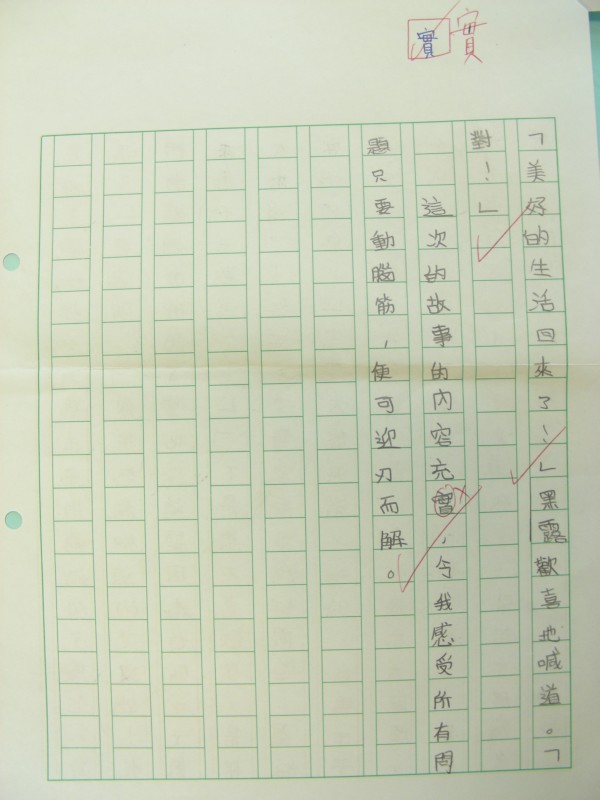 實 實
「美好的生活回來了!」黑露歡喜地喊道。「
對!」
這次的故事的內容充實,令我感受所有問
題只要動腦筋,便可迎刃而解。